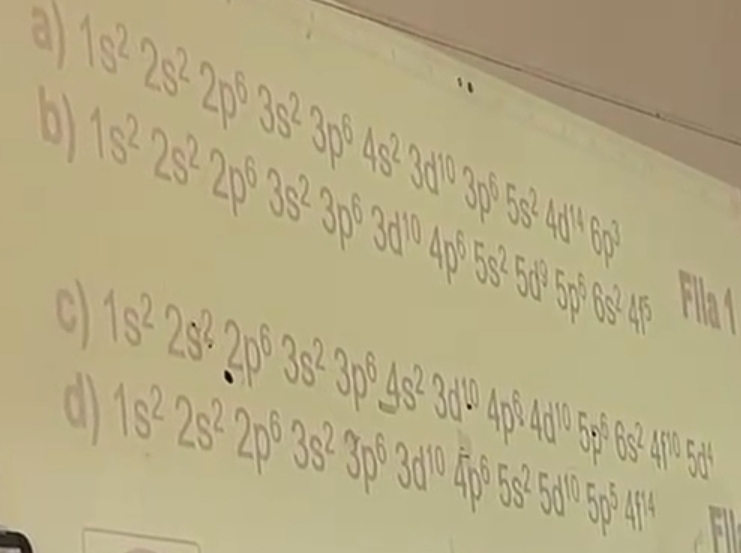 a) 1s² 2s² 2p⁶ 3s² 3p⁶ 4s² 3d¹⁰ 3p⁶ 5s² 4d¹⁴ 6p³
b) 1s² 2s² 2p⁶ 3s² 3p⁶ 3d¹⁰ 4p⁶ 5s² 5d⁹ 5p⁶ 6s² 4f⁵
Fila 1
c) 1s² 2s² 2p⁶ 3s² 3p⁶ 4s² 3d¹⁰ 4p⁶ 4d¹⁰ 5p⁶ 6s² 4f¹⁰ 5d⁴
d) 1s² 2s² 2p⁶ 3s² 3p⁶ 3d¹⁰ 4p⁶ 5s² 5d¹⁰ 5p⁵ 4f¹⁴